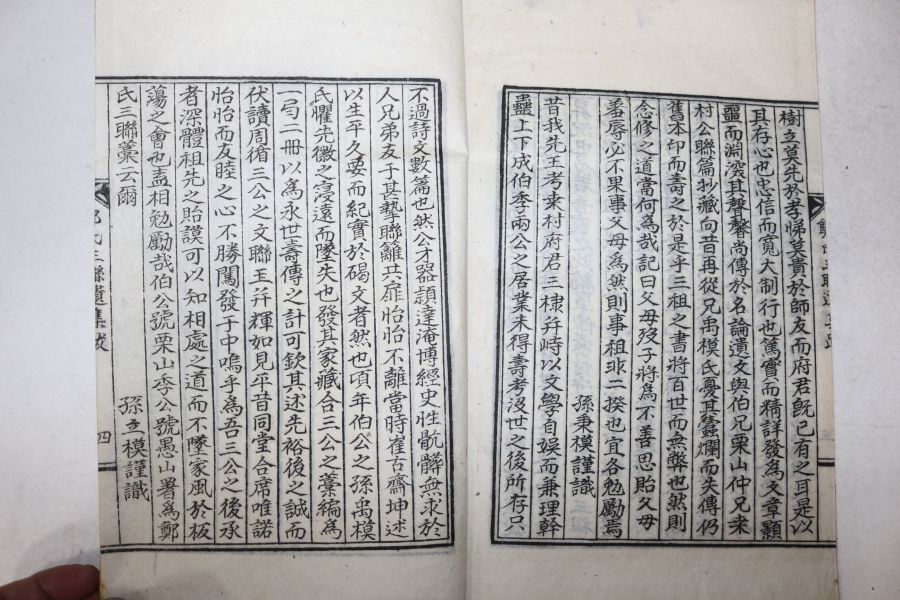 樹立莫先於孝悌莫貴於師友而府君旣已有之耳是以
其存心也忠信而寬大制行也篤實而精詳發為文章顥
噩而淵深其聲馨尚傳於名論遺文與伯兄栗山仲兄來
村公聯篇抄藏向昔再從兄禹模氏憂其蠹爛而失傳仍
舊本印而壽之於是乎三祖之書將百世而無弊也然則
念修之道當何為哉記曰父母歿子將為不善思貽父母
羞辱必不果事父母為然則事祖非二揆也宜各勉勵焉
孫秉模謹識
昔我先王考來村府君三棣幷峙以文學自娛而兼理幹
蠱上下成伯季兩公之居業未得壽考沒世之後所存只
不過詩文數篇也然公才器穎達淹博經史性骯髒無求於
人兄弟友于甚摯聯籬共扉怡怡不離當時崔古齋坤述
以生平久要而紀實於碣文者然也頃年伯公之孫禹模
氏懼先徽之寖遠而墜失也發其家藏合三公之藁編為
一弓二冊以為永世壽傳之計可欽其述先裕後之誠而
伏讀周循三公之文聯玉幷輝如見平昔同堂合席唯諾
怡怡而友睦之心不勝闖發于中嗚乎為吾三公之後承
者深體祖先之貽謨可以知相處之道而不墜家風於板
蕩之會也盍相勉勵哉伯公號栗山季公號愚山署為鄭
氏三聯藁云爾
孫立模謹識
氏三聯遺集跋
四